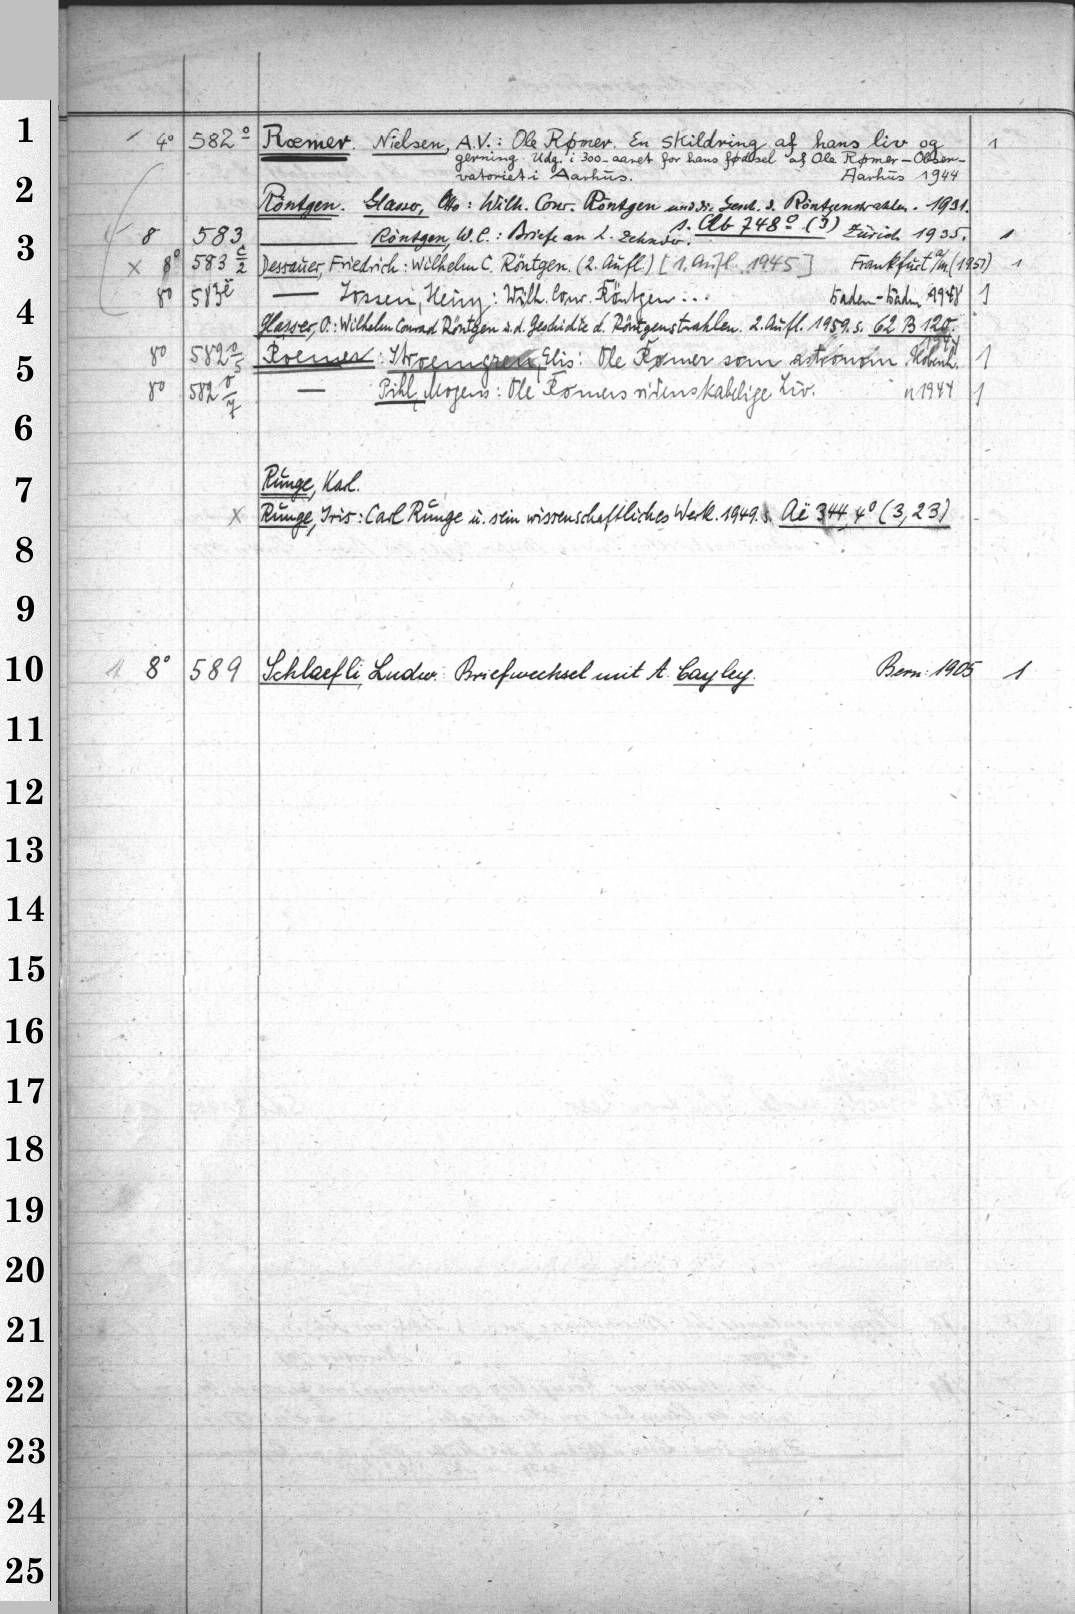 1 4° 582° Rœmer. Nielsen, A.V.: Ole Rømer. En skildring af hans liv og 1
gerning. Udg. i 300-aaret for hans fødsel af Ole Rømer-Obser-
2 vatoriet i Aarhus. Aarhus 1944
Röntgen. Glasser, Otto: Wilh. Conr. Röntgen und die Gesch. d. Röntgenstrahlen. 1931.
s. Ab 748° (3)
3 8 583 Röntgen, W.C.: Briefe an L. Zehnder. Zürich 1935. 1
x 8° 583 c/2 Dessauer, Friedrich: Wilhelm C. Röntgen. (2. Aufl.) [1. Aufl. 1945] Frankfurt a/M. (1951) 1
8° 583 e — Lossen, Heinz: Wilh. Conr. Röntgen... Baden-Baden 1948 1
4 Glasser, O.: Wilhelm Conrad Röntgen u. d. Geschichte d. Röntgenstrahlen. 2. Aufl. 1959. s. 62 B 120.
1944
5 8° 582 o/5 Roemer: Stroemgren, Elis: Ole Rømer som astronom. Kobenh. 1
8° 582 o/7 — Pihl, Mogens: Ole Rømers videnskabelige Liv. " 1944 1
6
7 Runge, Karl.
x Runge, Iris: Carl Runge u. sein wissenschaftliches Werk. 1949. s. Aë 344 4° (3,23)
8
9
10 8° 589 Schlaefli, Ludw. Briefwechsel mit A. Cayley. Bern: 1905 1
11
12
13
14
15
16
17
18
19
20
21
22
23
24
25